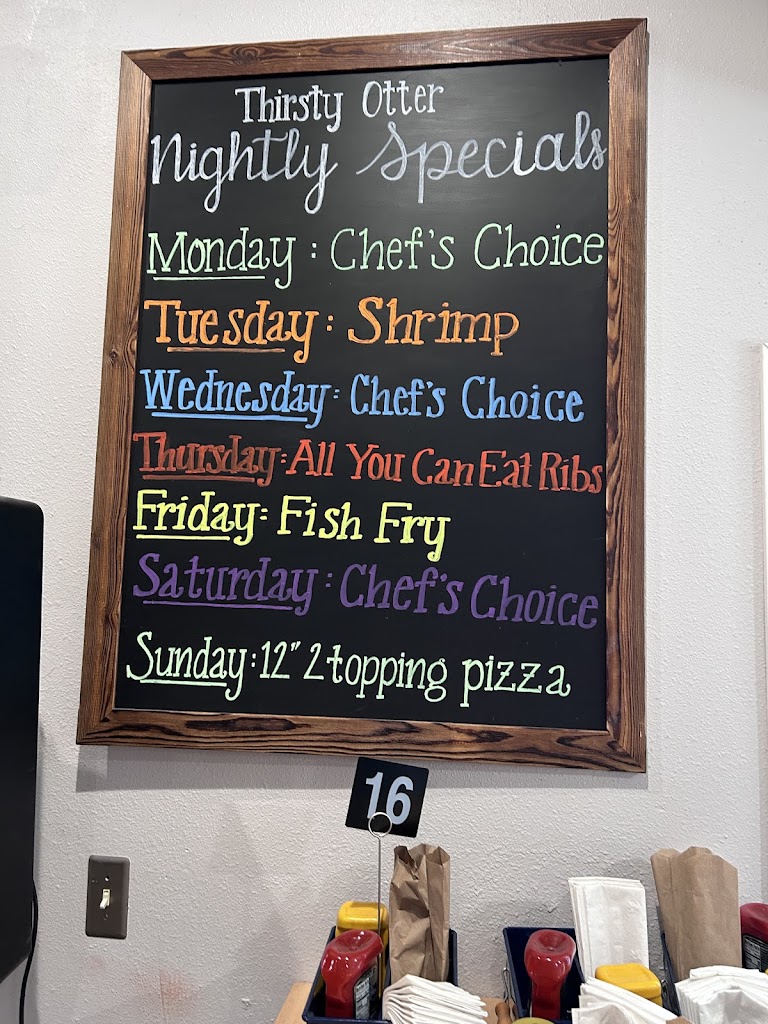 Thirsty Otter
Nightly Specials
Monday : Chef's Choice
Tuesday : Shrimp
Wednesday : Chef's Choice
Thursday : All You Can Eat Ribs
Friday : Fish Fry
Saturday : Chef's Choice
Sunday : 12" 2 topping pizza
16